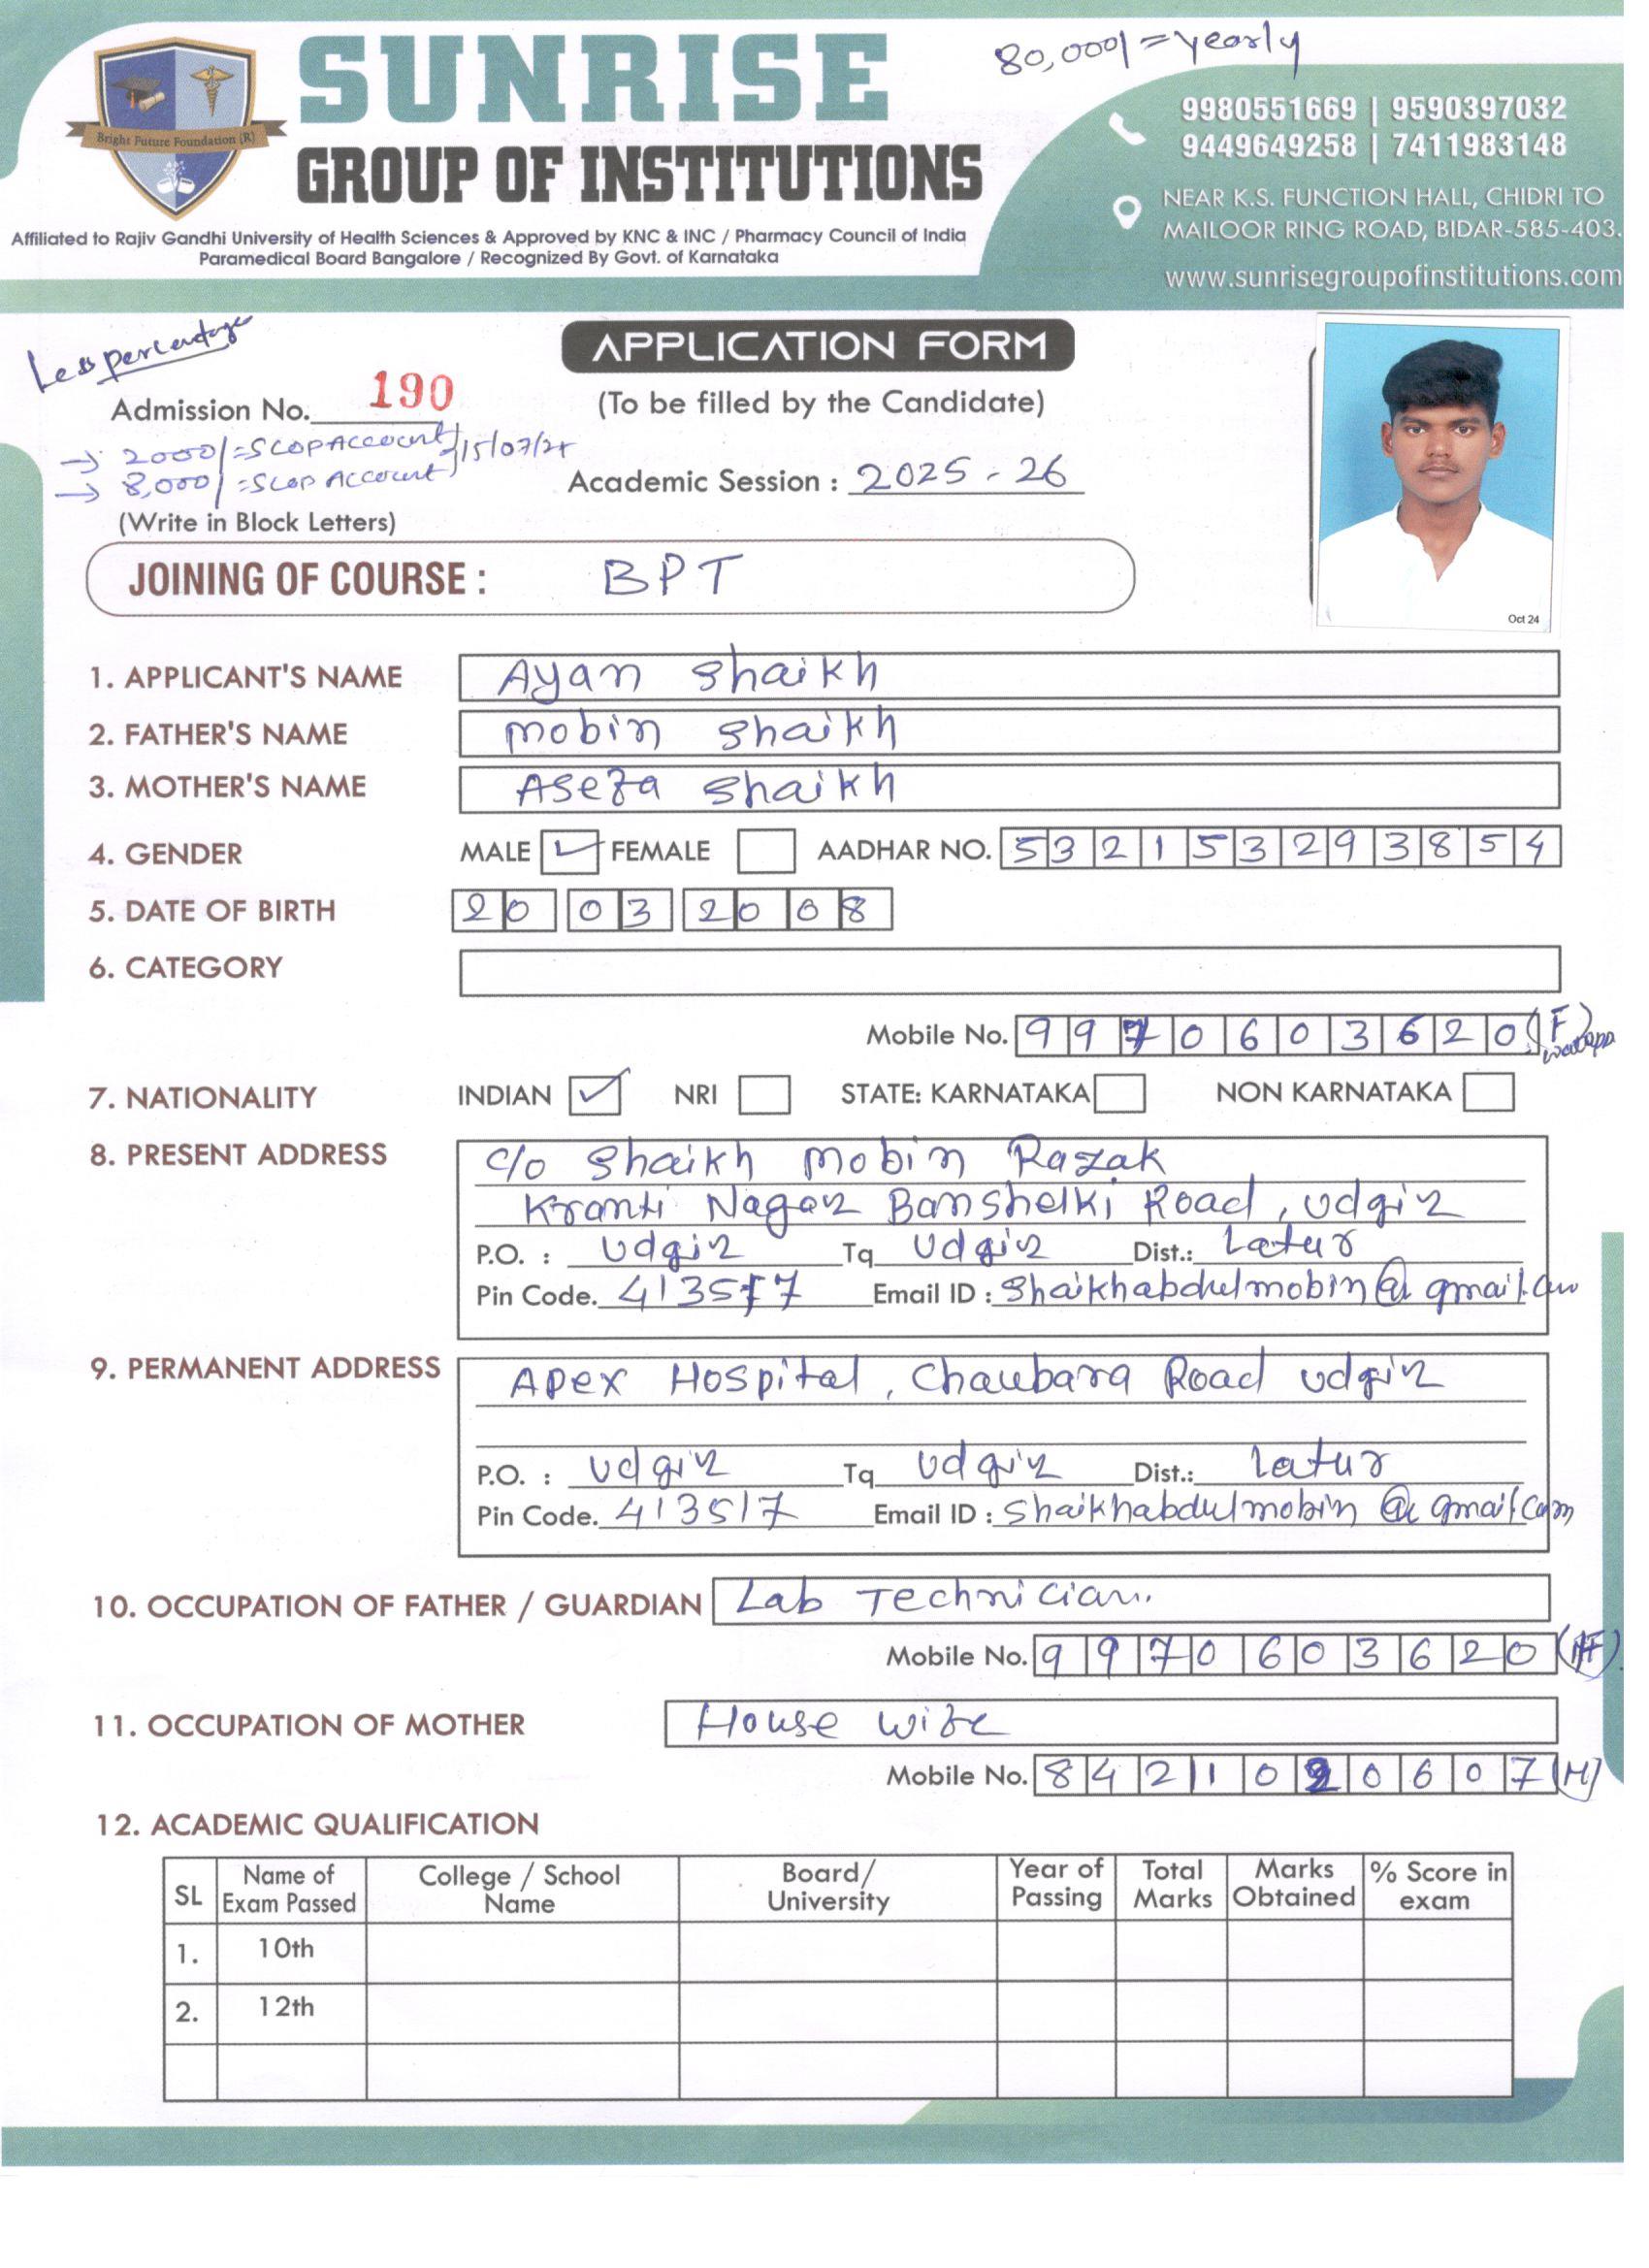 80,000/= yearly
SUNRISE
GROUP OF INSTITUTIONS
Bright Future Foundation (R)
Affiliated to Rajiv Gandhi University of Health Sciences & Approved by KNC & INC / Pharmacy Council of India
Paramedical Board Bangalore / Recognized By Govt. of Karnataka
9980551669 | 9590397032
9449649258 | 7411983148
NEAR K.S. FUNCTION HALL, CHIDRI TO
MAILOOR RING ROAD, BIDAR-585-403.
www.sunrisegroupofinstitutions.com
Less percentage
APPLICATION FORM
(To be filled by the Candidate)
Admission No. 190
→ 2000/= SCOP Account 15/07/25
→ 8,000/= SCOP Account
Academic Session : 2025 - 26
(Write in Block Letters)
JOINING OF COURSE : BPT
Oct 24
1. APPLICANT'S NAME Ayan Shaikh
2. FATHER'S NAME mobin Shaikh
3. MOTHER'S NAME Asefa Shaikh
4. GENDER MALE ✓ FEMALE AADHAR NO. 532153293854
5. DATE OF BIRTH 20 03 2008
6. CATEGORY
Mobile No. 9970603620 (F)
7. NATIONALITY INDIAN ✓ NRI STATE: KARNATAKA NON KARNATAKA
8. PRESENT ADDRESS c/o Shaikh mobin Razak
Kranti Nagar Banshelki Road, udgir
P.O. : udgir Tq udgir Dist.: Latur
Pin Code. 413517 Email ID : Shaikhabdulmobin@gmail.com
9. PERMANENT ADDRESS Apex Hospital, Chaubara Road udgir
P.O. : udgir Tq udgir Dist.: Latur
Pin Code. 413517 Email ID : Shaikhabdulmobin@gmail.com
10. OCCUPATION OF FATHER / GUARDIAN Lab Technician.
Mobile No. 9970603620 (F)
11. OCCUPATION OF MOTHER House wife
Mobile No. 8421020607 (M)
12. ACADEMIC QUALIFICATION
SL Name of Exam Passed College / School Name Board/ University Year of Passing Total Marks Marks Obtained % Score in exam
1. 10th
2. 12th